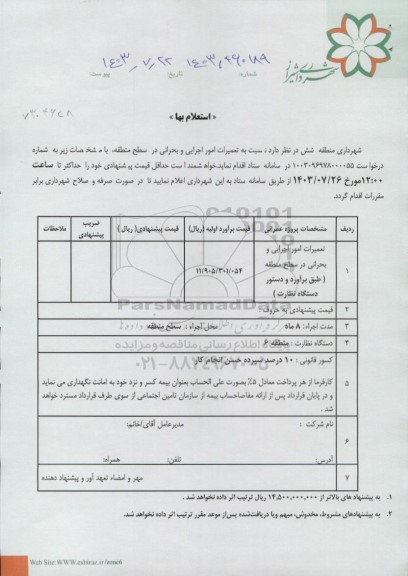 شهرداری شیراز
شماره: ۱۴۰۳/۲۹۰۱۸۹
تاریخ: ۱۴۰۳/۷/۲۲
پیوست:
« استعلام بها »
شهرداری منطقه شش در نظر دارد نسبت به تعمیرات امور اجرایی و بحرانی در سطح منطقه، با مشخصات زیر به شماره
درخواست ۱۰۰۳۰۹۶۹۷۸۰۰۰۰۵۵ در سامانه ستاد اقدام نماید.خواهشمند است حداقل قیمت پیشنهادی خود را حداکثر تا ساعت
۱۲:۰۰مورخ ۱۴۰۳/۰۷/۲۶ از طریق سامانه ستاد به این شهرداری اعلام نمایید تا در صورت صرفه و صلاح شهرداری برابر
مقررات اقدام گردد.
ردیف مشخصات پروژه عمرانی قیمت برآورد اولیه (ریال) قیمت پیشنهادی( ریال) ضریب پیشنهادی ملاحظات
۱ تعمیرات امور اجرایی و
بحرانی در سطح منطقه
( طبق برآورد و دستور
دستگاه نظارت ) ۱۱/۹۰۵/۳۰۱/۰۵۴
۲ قیمت پیشنهادی به حروف :
۳ مدت اجراء: ۸ ماه محل اجراء : سطح منطقه
۴ دستگاه نظارت : منطقه ۶
۵ کسور قانونی : ۱۰ درصد سپرده حسن انجام کار
کارفرما از هر پرداخت معادل ۵٪ بصورت علی الحساب بعنوان بیمه کسر و نزد خود به امانت نگهداری می نماید
و در پایان قرارداد پس از ارائه مفاصاحساب بیمه از سازمان تامین اجتماعی از سوی طرف قرارداد مسترد خواهد
شد .
۶ نام شرکت : مدیرعامل آقای/خانم:
آدرس: تلفن: همراه:
۷ مهر و امضاء تعهد آور و پیشنهاد دهنده
۱. به پیشنهاد های بالاتر از ۱۴،۵۰۰،۰۰۰،۰۰۰ ریال ترتیب اثر داده نخواهد شد .
۲. به پیشنهادهای مشروط، مخدوش، مبهم ویا دریافت‌شده پس‌از موعد مقرر ترتیب اثر داده نخواهد شد.
ParsNamadData
۰۲۱-۸۸۳۴۹۶۷۰-۵
Web Site:WWW.eshiraz.ir/